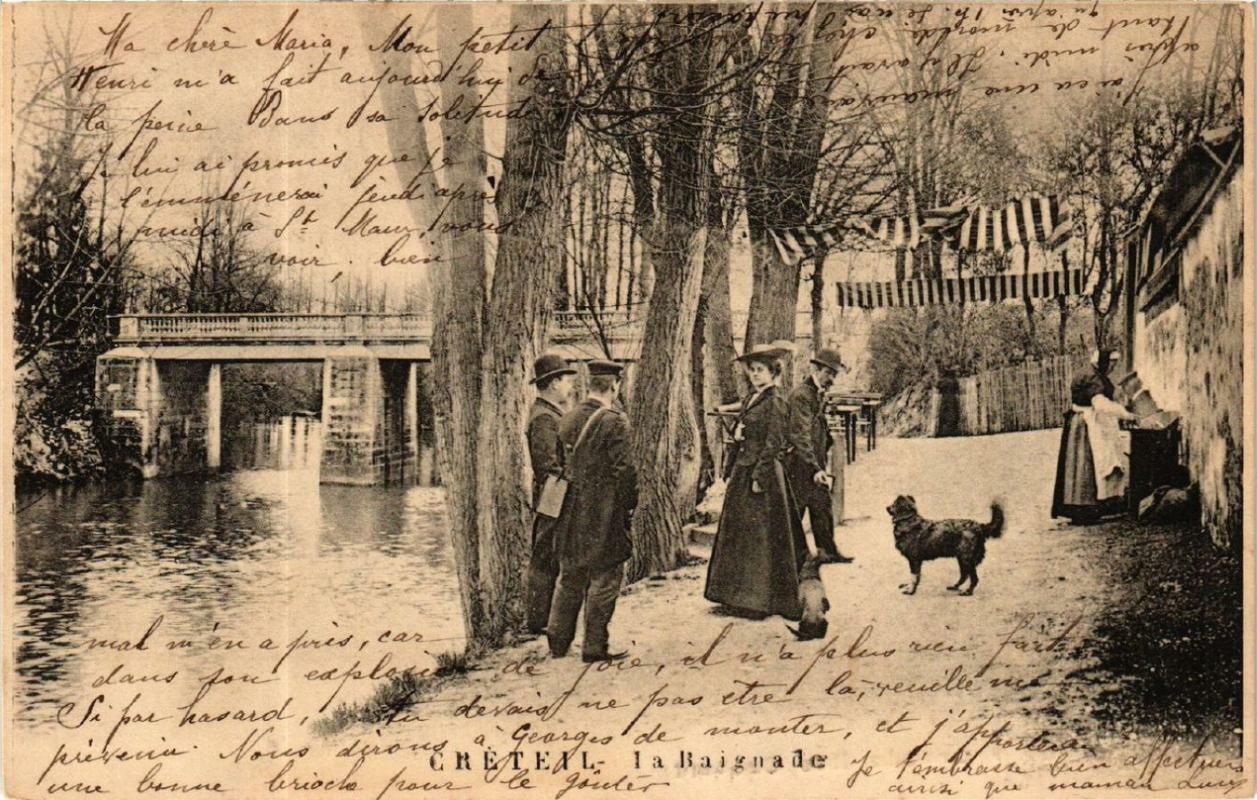 Ma chère Maria, Mon petit
Henri m'a fait aujourd'hui de
la peine Dans sa solitude
Je lui ai promis que je
l'emmènerai jeudi après
midi à St Maur vous
voir, bien
mal m'en a pris, car
dans son explosion de joie, il n'a plus rien fait
Si par hasard, tu devais ne pas être là, veuille me
prévenir. Nous dirons à Georges de monter, et j'apporterai
une bonne brioche pour le goûter
Je t'embrasse bien affectueus
ainsi que maman Lucy
CRÉTEIL - la Baignade
qu'après 1h. Je
haut de monde chez
après midi. Il y avait
a eu une mauvaise